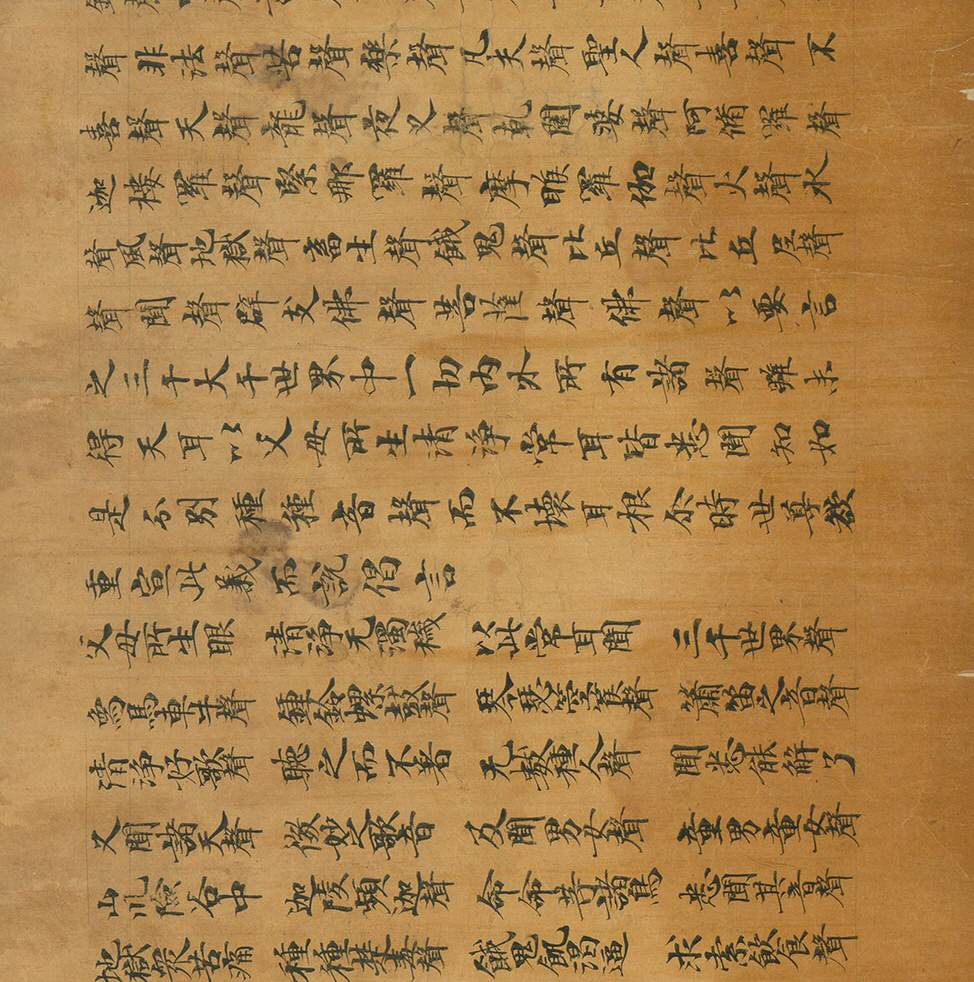 聲非法聲苦聲樂聲凡夫聲聖人聲喜聲不
喜聲天聲龍聲夜叉聲乾闥婆聲阿脩羅聲
迦樓羅聲緊那羅聲摩睺羅伽聲火聲水
聲風聲地獄聲畜生聲餓鬼聲比丘聲比丘尼聲
聲聞聲辟支佛聲菩薩聲佛聲以要言
之三千大千世界中一切內外所有諸聲雖未
得天耳以父母所生清淨常耳皆悉聞知如
是分別種種音聲而不壞耳根尒時世尊欲
重宣此義而說偈言
父母所生眼 清淨无濁穢 以此常耳聞 三千世界聲
象馬車牛聲 鍾鈴螺鼓聲 琴瑟箜篌聲 簫笛之音聲
清淨好歌聲 聽之而不著 无數種人聲 聞悉能解了
又聞諸天聲 微妙之歌音 及聞男女聲 童男童女聲
山川險谷中 迦陵頻迦聲 命命等諸鳥 悉聞其音聲
地獄眾苦痛 種種楚毒聲 餓鬼飢渴逼 求索飲食聲